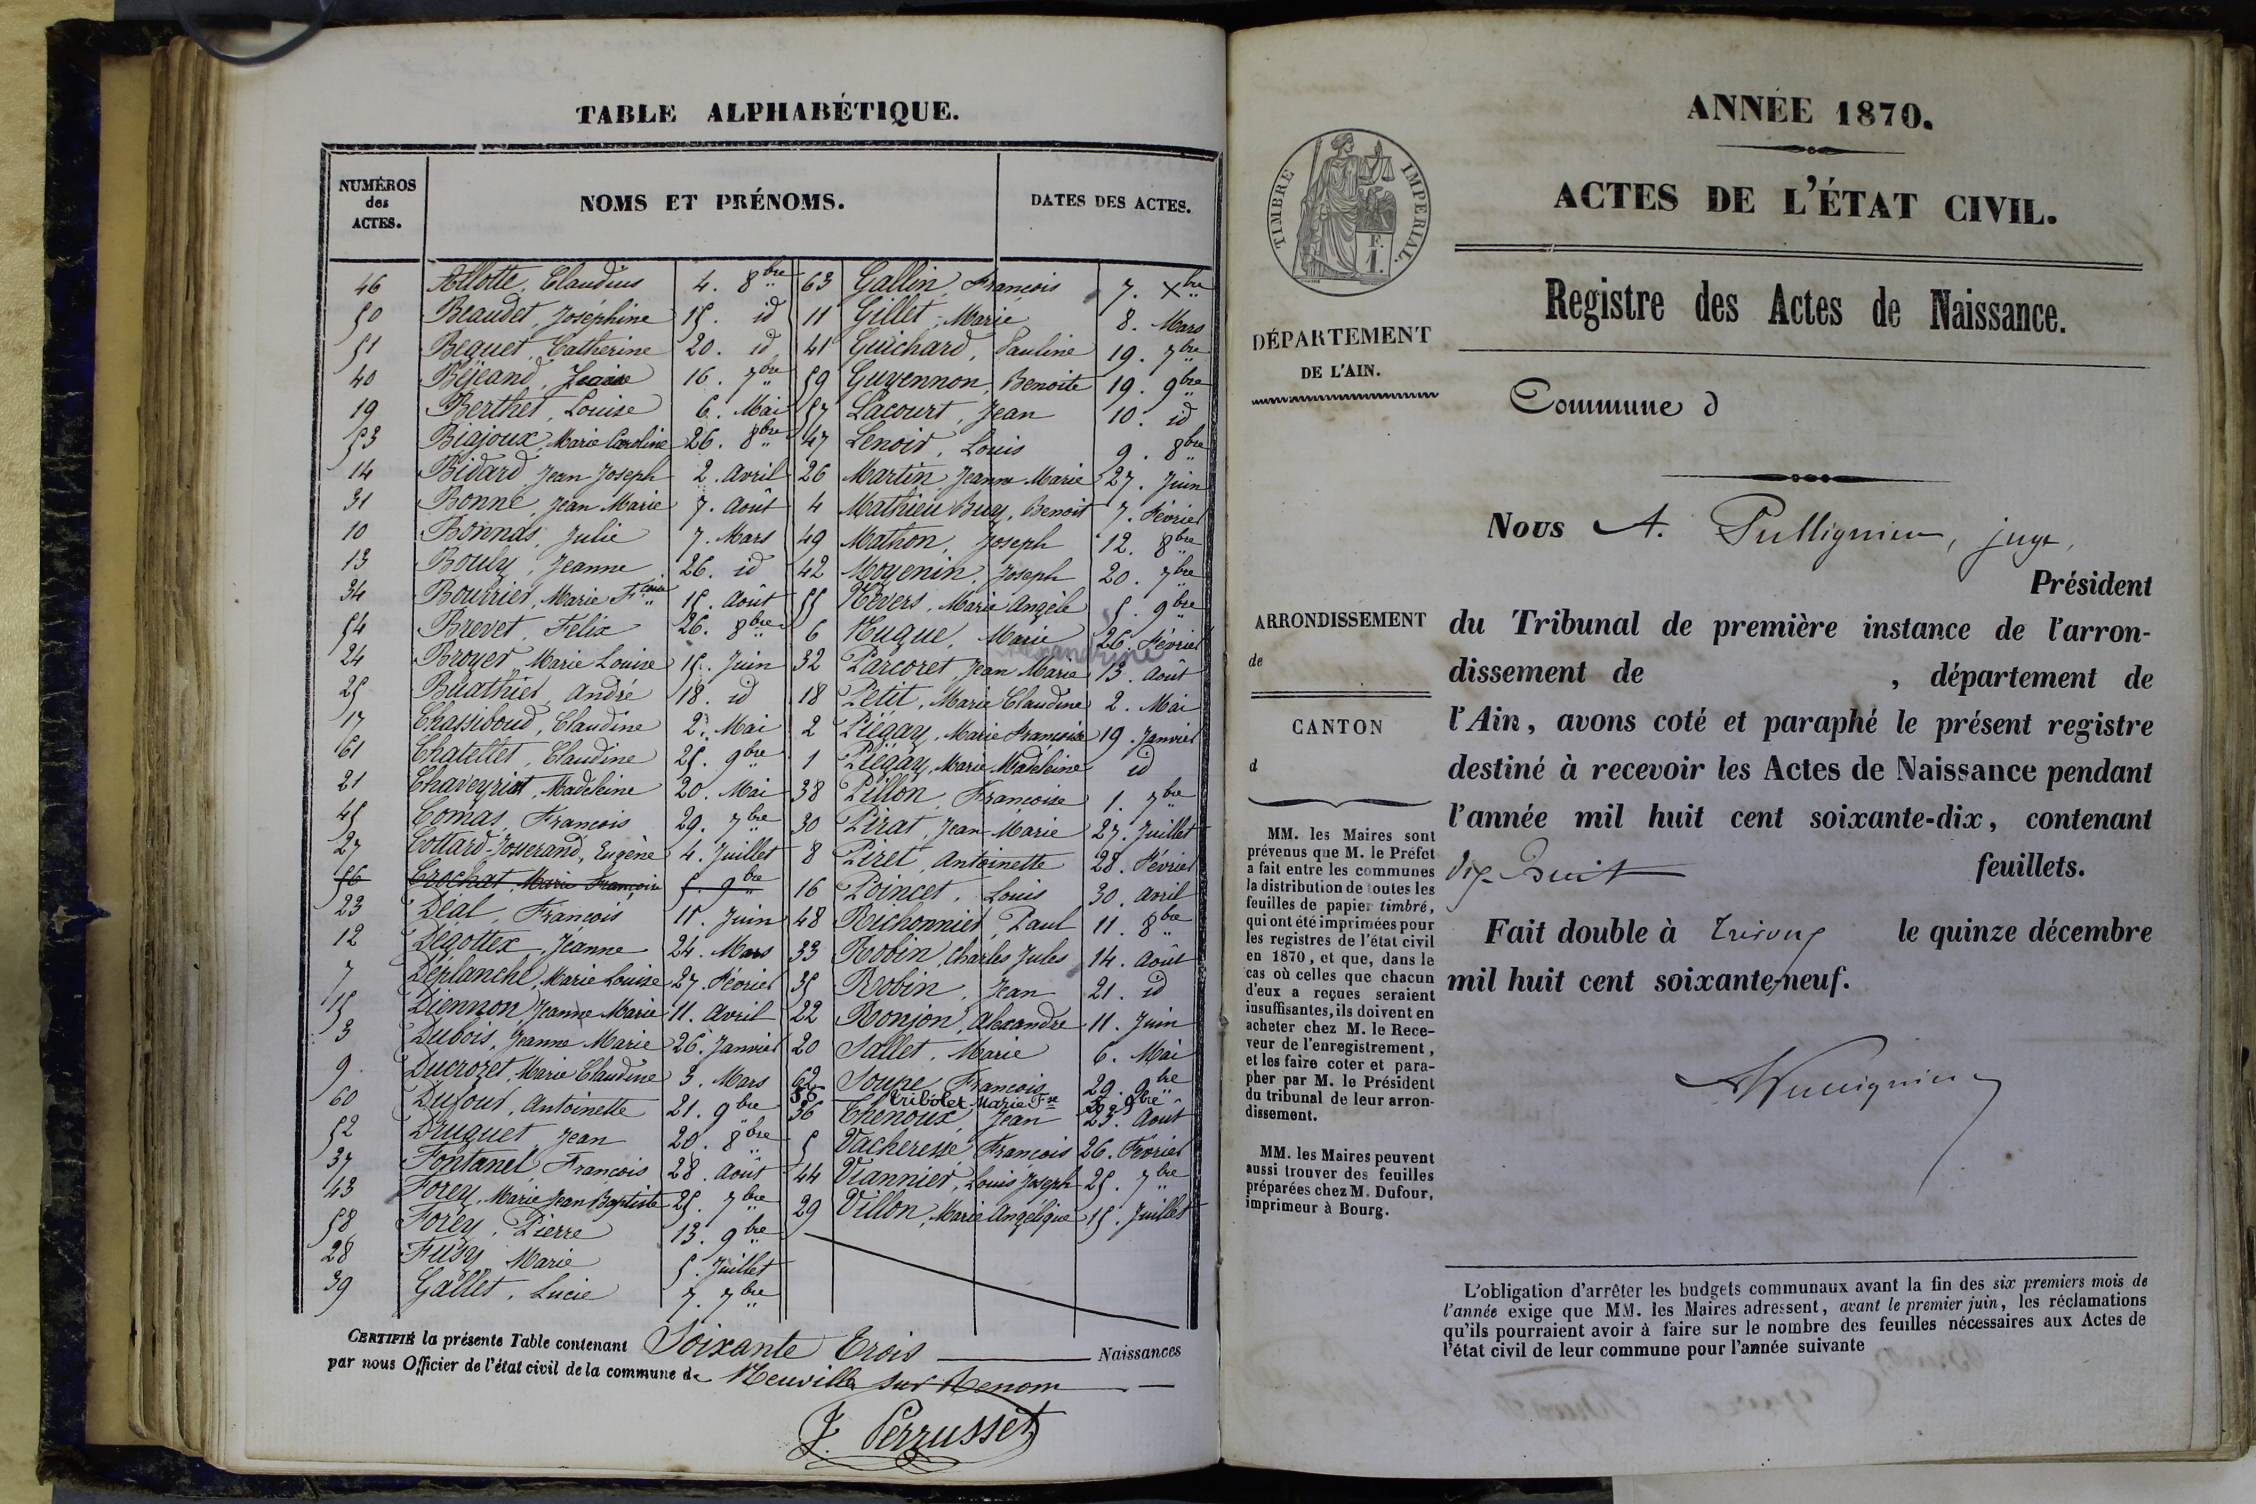 TABLE ALPHABÉTIQUE.
NUMÉROS des ACTES.
NOMS ET PRÉNOMS.
DATES DES ACTES.
46 Allotte, Claudius 4. 8bre
50 Beaudet, Joséphine 15. id
51 Bequet, Catherine 20. id
40 Béjeand, 16. 7bre
19 Berthet, Louise 6. Mai
53 Biajoux, Marie Caroline 26. 8bre
14 Bidard, Jean Joseph 2. Avril
31 Bonne, Jean Marie 7. Août
10 Bonnas, Julie 7. Mars
13 Bouly, Jeanne 26. id
34 Bourrier, Marie Fçoise 15. Août
54 Brevet, Félix 26. 8bre
24 Broyer, Marie Louise 15. Juin
25 Buathier, André 18. id
17 Chassiboud, Claudine 2. Mai
61 Chatellet, Claudine 25. 9bre
21 Chaveyriat, Madeleine 20. Mai
45 Comas, François 29. 7bre
27 Cottard-Jouerand, Eugène 4. Juillet
56 Crochat, Marie Françoise 5. 9bre
23 Déal, François 15. Juin
12 Dégottex, Jeanne 24. Mars
7 Déplanche, Marie Louise 27. Février
15 Diennon, Jeanne Marie 11. Avril
3 Dubois, Jeanne Marie 26. Janvier
9 Ducrozet, Marie Claudine 3. Mars
60 Dufour, Antoinette 21. 9bre
52 Druguet, Jean 20. 8bre
37 Fontanel, François 28. Août
43 Forey, Marie Jean Baptiste 25. 7bre
58 Forey, Pierre 13. 9bre
28 Fusy, Marie 5. Juillet
39 Gallet, Lucie 7. 7bre
63 Gallin, François 7. Xbre
11 Gillet, Marie 8. Mars
41 Guichard, Pauline 19. 7bre
59 Guyennon, Benoite 19. 9bre
57 Lacourt, Jean 10. id
47 Lenoir, Louis 9. 8bre
26 Martin, Jeanne Marie 27. Juin
4 Mathieu Buy, Benoit 7. Février
49 Mathon, Joseph 12. 8bre
42 Moyenin, Joseph 20. 7bre
55 Nevers, Marie Angèle 5. 9bre
6 Nugue, Marie 26. Février
Alexandrine
32 Parcoret, Jean Marie 13. Août
18 Petit, Marie Claudine 2. Mai
2 Piégay, Marie Françoise 19. Janvier
1 Piégay, Marie Madeleine id
38 Pillon, Françoise 1. 7bre
30 Pirat, Jean-Marie 27. Juillet
8 Piret, Antoinette 28. Février
16 Poincet, Louis 30. Avril
48 Richonnier, Paul 11. 8bre
33 Robin, Charles Jules 14. Août
35 Robin, Jean 21. id
22 Ronjon, Alexandre 11. Juin
20 Sallet, Marie 6. Mai
62 Soupe, François 29. 9bre
56 Tribolet Marie Fse 5. 9bre
36 Thenoux, Jean 23. Août
5 Vacheresse, François 26. Février
44 Viannier, Louis Joseph 25. 7bre
29 Villon, Marie Angélique 15. Juillet
CERTIFIÉ la présente Table contenant Soixante Trois Naissances
par nous Officier de l'état civil de la commune de Neuville sur Renom
J. Perrusset
ANNÉE 1870.
ACTES DE L'ÉTAT CIVIL.
Registre des Actes de Naissance.
TIMBRE IMPERIAL.
F.
1.
DÉPARTEMENT
DE L'AIN.
Commune d
ARRONDISSEMENT
de
CANTON
d
MM. les Maires sont
prévenus que M. le Préfet
a fait entre les communes
la distribution de toutes les
feuilles de papier timbré,
qui ont été imprimées pour
les registres de l'état civil
en 1870, et que, dans le
cas où celles que chacun
d'eux a reçues seraient
insuffisantes, ils doivent en
acheter chez M. le Rece-
veur de l'enregistrement,
et les faire coter et para-
pher par M. le Président
du tribunal de leur arron-
dissement.
MM. les Maires peuvent
aussi trouver des feuilles
préparées chez M. Dufour,
imprimeur à Bourg.
Nous A. juge,
Président
du Tribunal de première instance de l'arron-
dissement de , département de
l'Ain, avons coté et paraphé le présent registre
destiné à recevoir les Actes de Naissance pendant
l'année mil huit cent soixante-dix, contenant
dix-huit feuillets.
Fait double à Trévoux le quinze décembre
mil huit cent soixante-neuf.
L'obligation d'arrêter les budgets communaux avant la fin des six premiers mois de
l'année exige que MM. les Maires adressent, avant le premier juin, les réclamations
qu'ils pourraient avoir à faire sur le nombre des feuilles nécessaires aux Actes de
l'état civil de leur commune pour l'année suivante